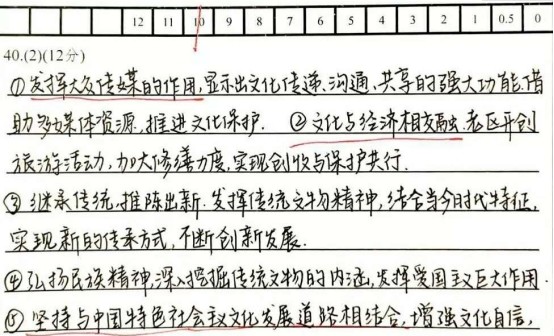 12 11 10 9 8 7 6 5 4 3 2 1 0.5 0
40.(2)(12分)
①发挥大众传媒的作用,显示出文化传递、沟通、共享的强大功能,借
助多媒体资源,推进文化保护. ②文化与经济相交融,老区开创
旅游活动,加大修缮力度,实现创收与保护共行.
③继承传统,推陈出新.发挥传统文物精神,结合当今时代特征,
实现新的传承方式,不断创新发展.
④弘扬民族精神,深入挖掘传统文物的内涵,发挥爱国主义巨大作用.
⑤坚持与中国特色社会主义文化发展道路相结合,增强文化自信,